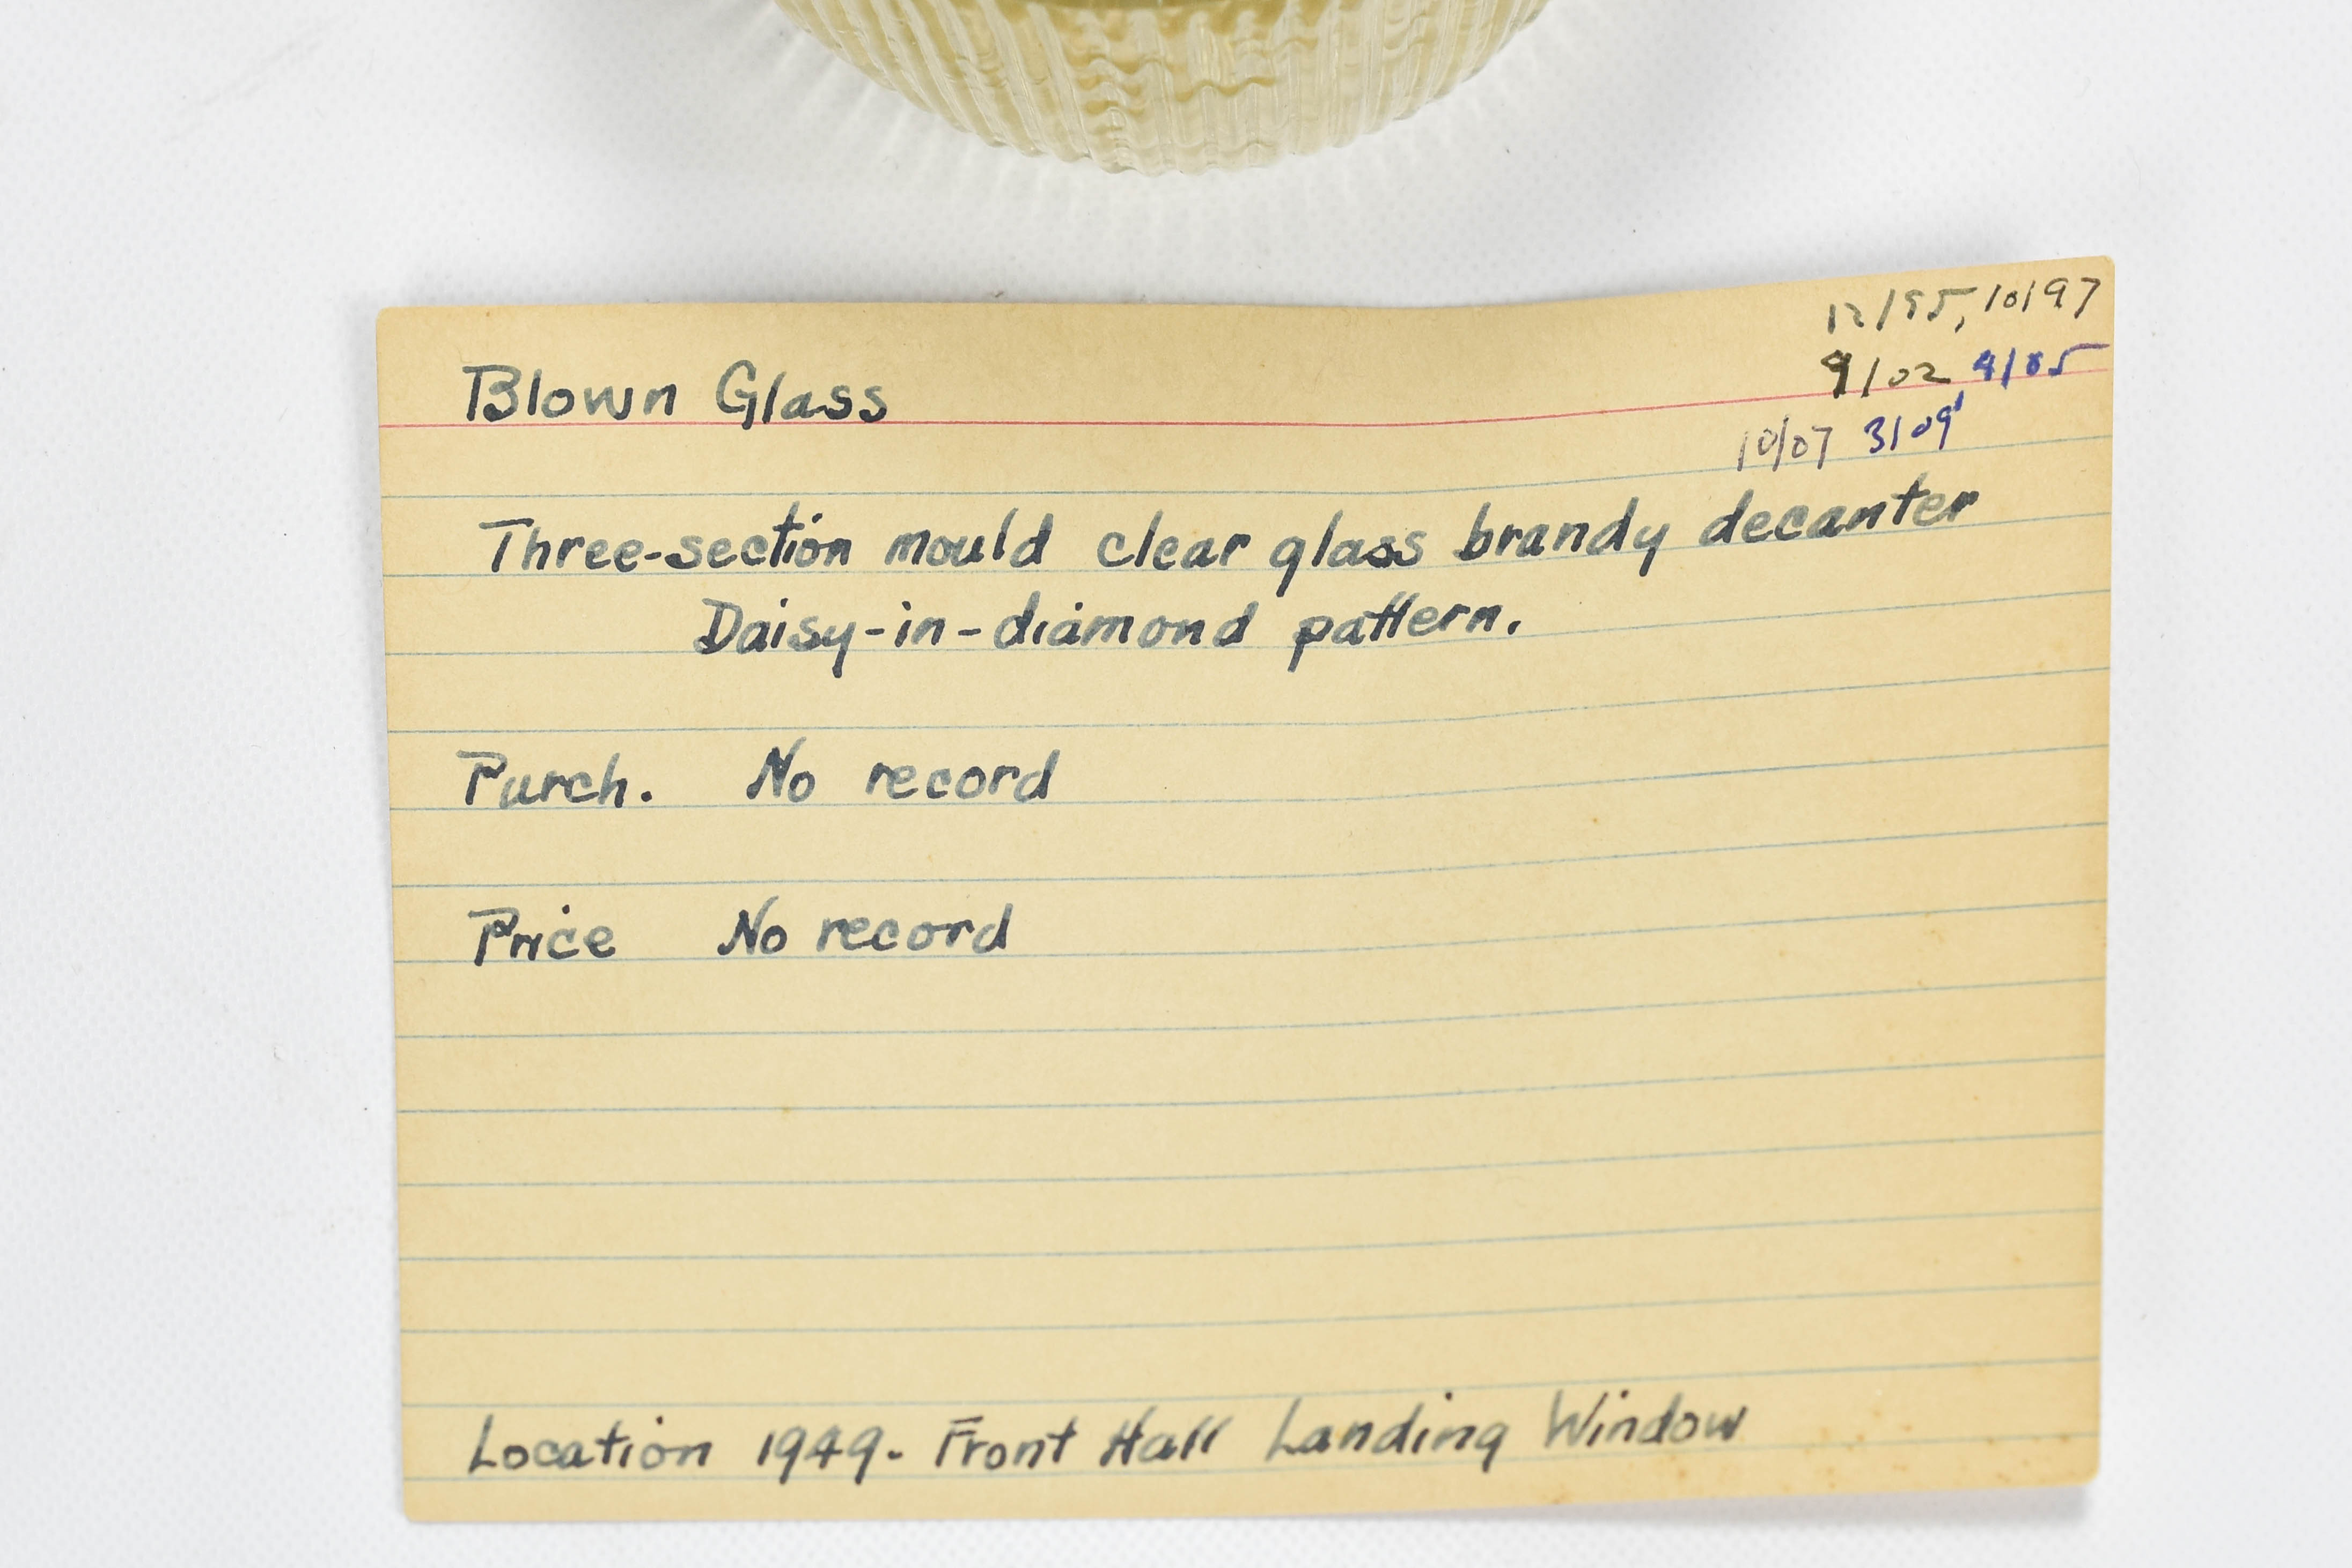 12/95, 10/97
9/02 4/05
10/07 3/09
Blown Glass
Three-section mould clear glass brandy decanter
Daisy-in-diamond pattern.
Purch. No record
Price No record
Location 1949- Front Hall Landing Window